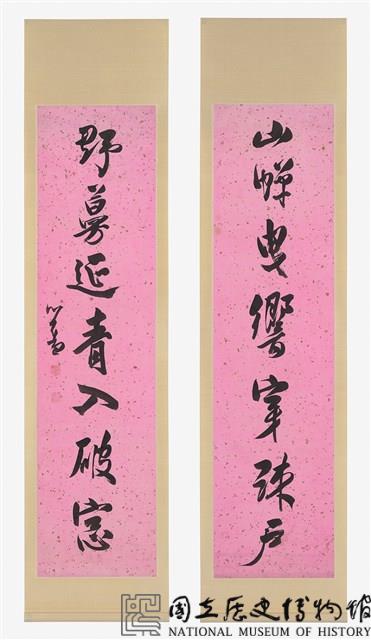 山蟬曳響穿疎戶
野蔓延青入破窓
心畬
國立歷史博物館
NATIONAL MUSEUM OF HISTORY